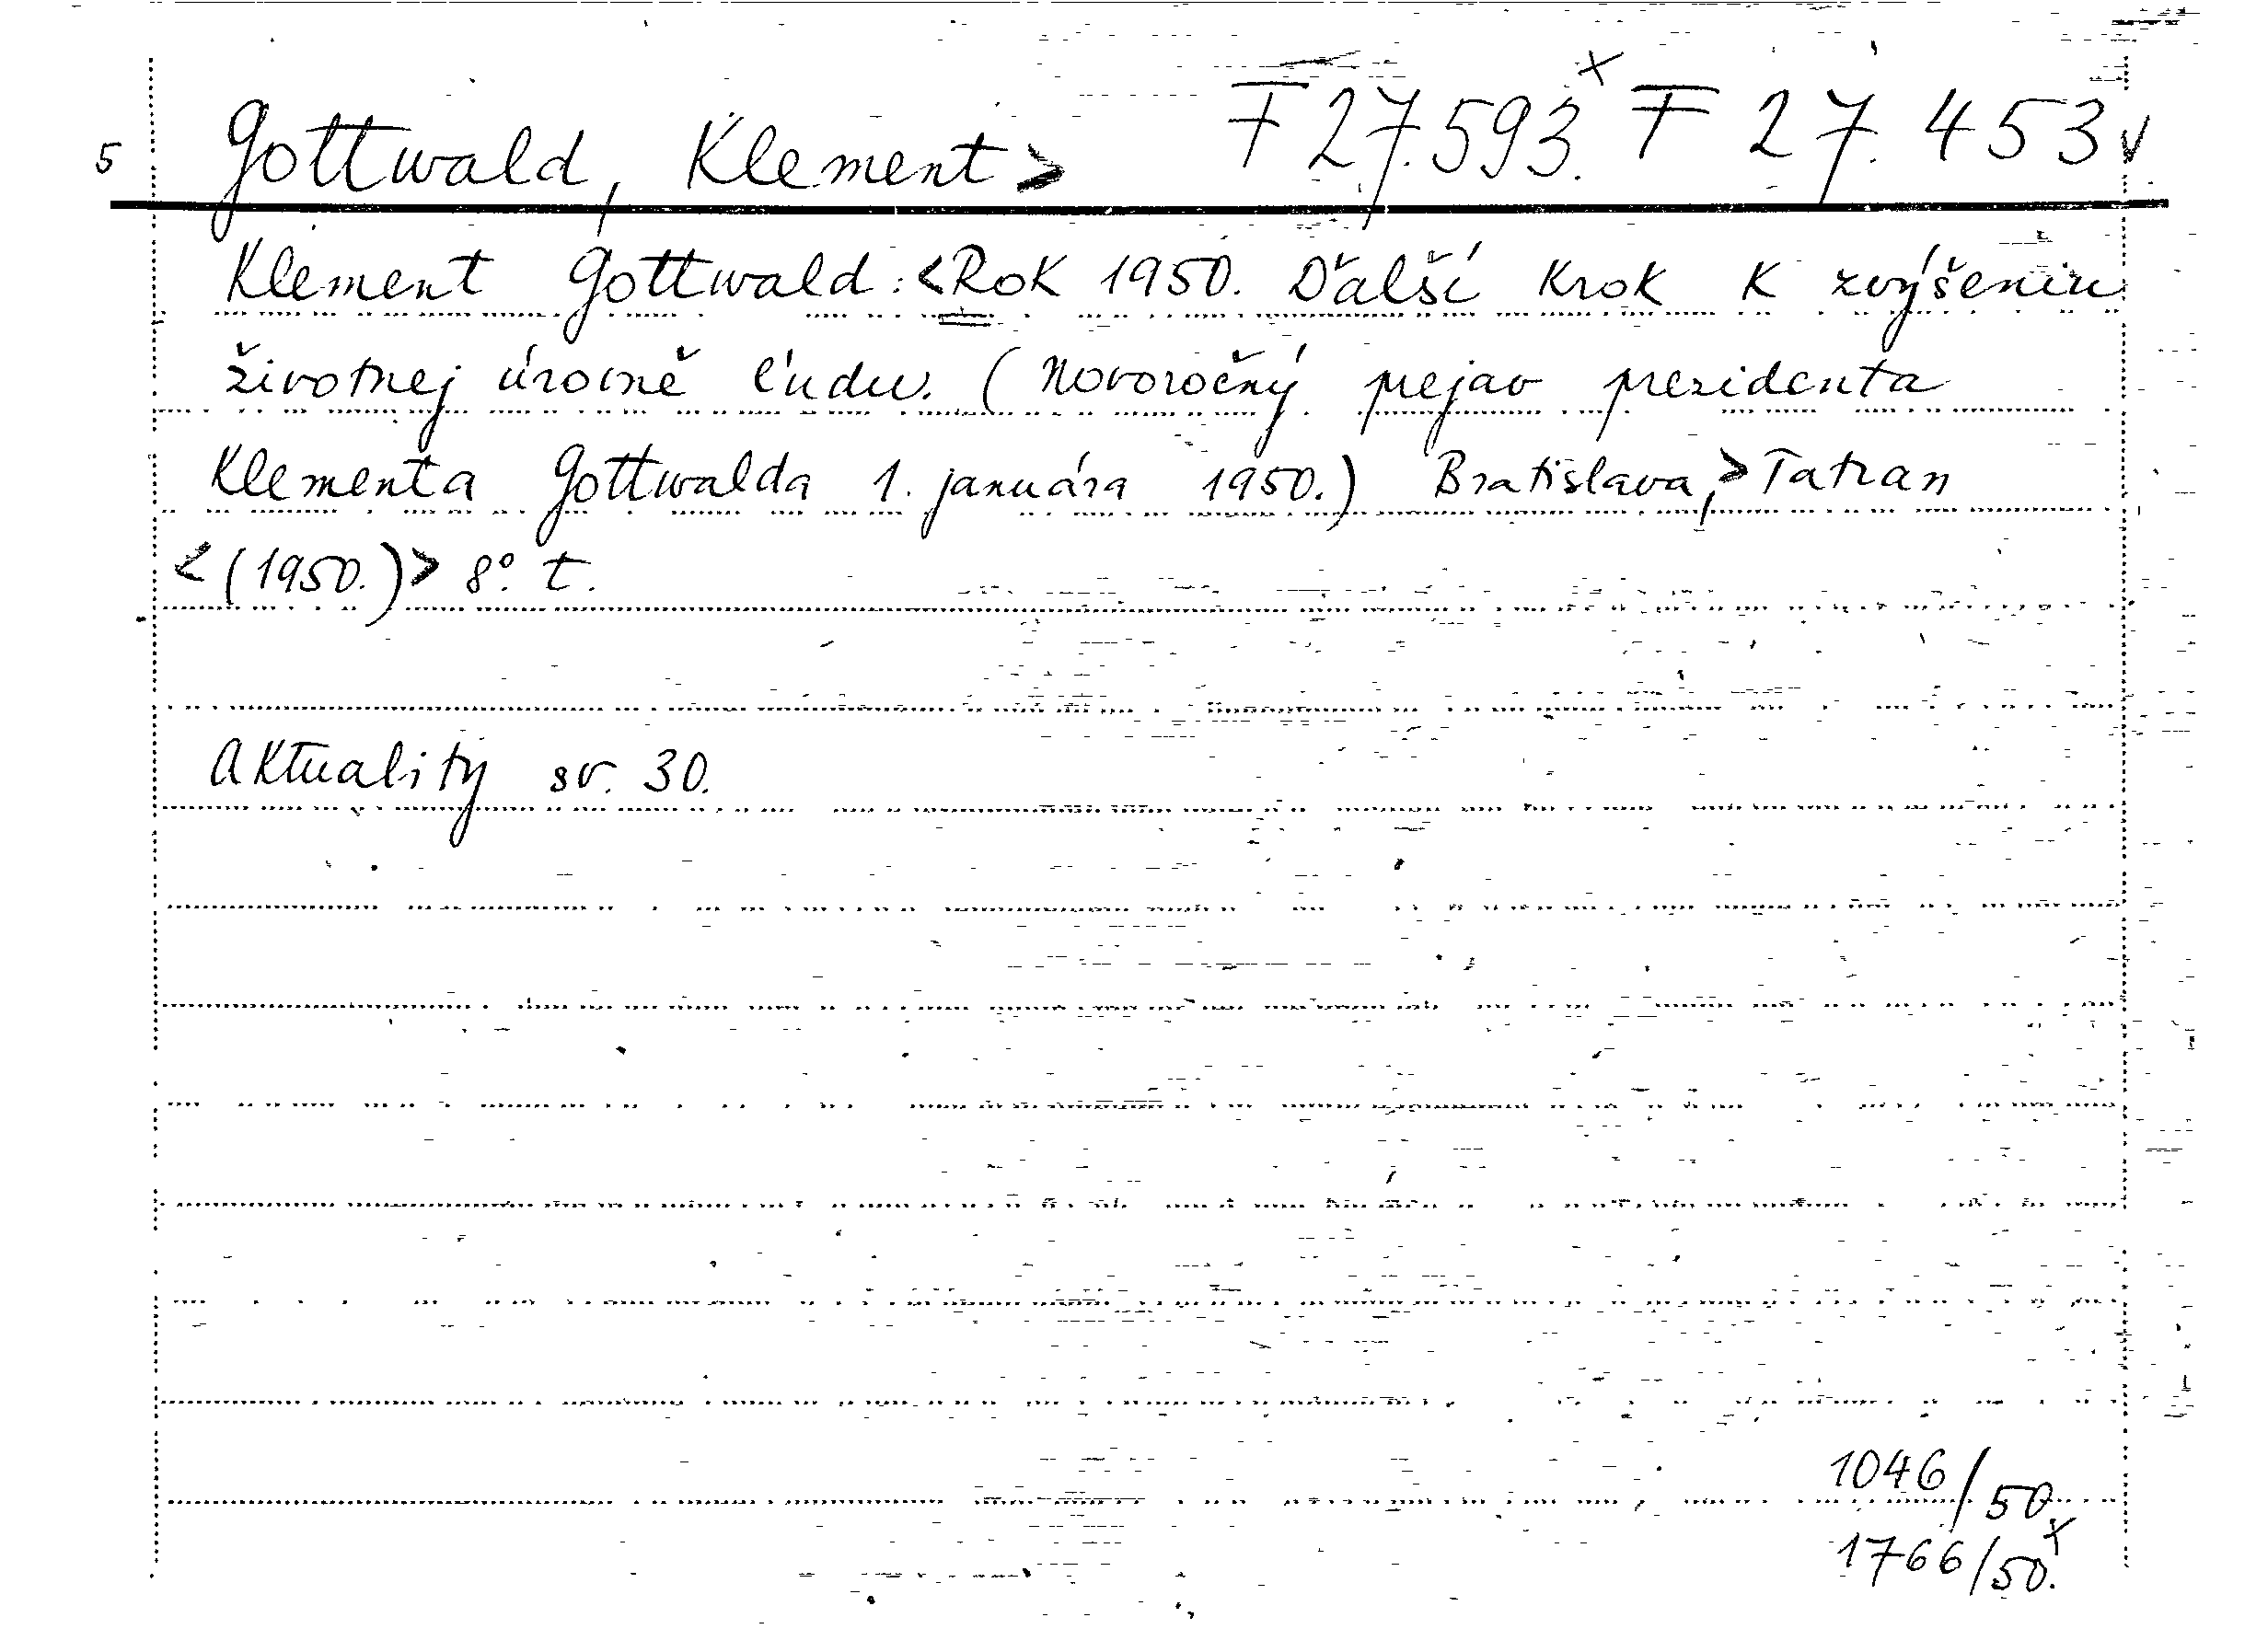 F 27.593.x F 27.453v
5 Gottwald, Klement>
Klement Gottwald: <Rok 1950. Ďalší krok k zvýšeniu
životnej úrovně ľudu. (Novoročný prejav prezidenta
Klementa Gottwalda 1. januára 1950.) Bratislava,> Tatran
<(1950.)> 8°. t.
Aktuality sv. 30.
1046/50.
1766/50.x